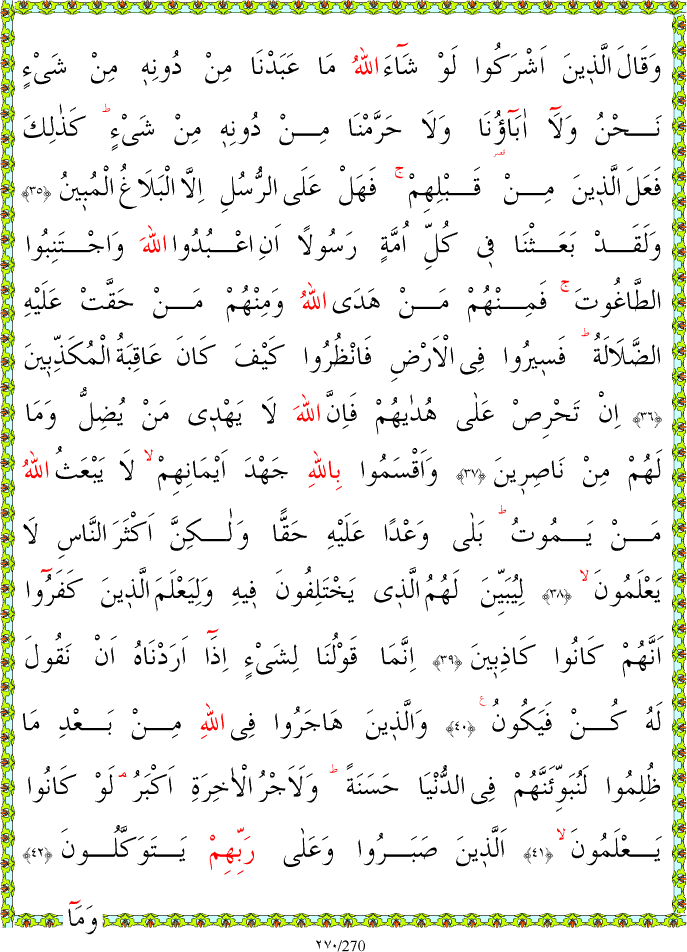 وَقَالَ الَّذ۪ينَ اَشْرَكُوا لَوْ شَٓاءَ اللّٰهُ مَا عَبَدْنَا مِنْ دُونِه۪ مِنْ شَيْءٍ
نَحْنُ وَلَٓا اٰبَٓاؤُ۬نَا وَلَا حَرَّمْنَا مِنْ دُونِه۪ مِنْ شَيْءٍ ۜ كَذٰلِكَ
فَعَلَ الَّذ۪ينَ مِنْ قَبْلِهِمْ ۚ فَهَلْ عَلَى الرُّسُلِ اِلَّا الْبَلَاغُ الْمُب۪ينُ ﴿٣٥﴾
وَلَقَدْ بَعَثْنَا ف۪ي كُلِّ اُمَّةٍ رَسُولًا اَنِ اعْبُدُوا اللّٰهَ وَاجْتَنِبُوا
الطَّاغُوتَ ۚ فَمِنْهُمْ مَنْ هَدَى اللّٰهُ وَمِنْهُمْ مَنْ حَقَّتْ عَلَيْهِ
الضَّلَالَةُ ۜ فَس۪يرُوا فِي الْاَرْضِ فَانْظُرُوا كَيْفَ كَانَ عَاقِبَةُ الْمُكَذِّب۪ينَ
﴿٣٦﴾ اِنْ تَحْرِصْ عَلٰى هُدٰيهُمْ فَاِنَّ اللّٰهَ لَا يَهْد۪ي مَنْ يُضِلُّ وَمَا
لَهُمْ مِنْ نَاصِر۪ينَ ﴿٣٧﴾ وَاَقْسَمُوا بِاللّٰهِ جَهْدَ اَيْمَانِهِمْ ۙ لَا يَبْعَثُ اللّٰهُ
مَنْ يَمُوتُ ۜ بَلٰى وَعْدًا عَلَيْهِ حَقًّا وَلٰكِنَّ اَكْثَرَ النَّاسِ لَا
يَعْلَمُونَ ۙ ﴿٣٨﴾ لِيُبَيِّنَ لَهُمُ الَّذ۪ي يَخْتَلِفُونَ ف۪يهِ وَلِيَعْلَمَ الَّذ۪ينَ كَفَرُٓوا
اَنَّهُمْ كَانُوا كَاذِب۪ينَ ﴿٣٩﴾ اِنَّمَا قَوْلُنَا لِشَيْءٍ اِذَٓا اَرَدْنَاهُ اَنْ نَقُولَ
لَهُ كُنْ فَيَكُونُ ۟ ﴿٤٠﴾ وَالَّذ۪ينَ هَاجَرُوا فِي اللّٰهِ مِنْ بَعْدِ مَا
ظُلِمُوا لَنُبَوِّئَنَّهُمْ فِي الدُّنْيَا حَسَنَةً ۜ وَلَاَجْرُ الْاٰخِرَةِ اَكْبَرُ ۢ لَوْ كَانُوا
يَعْلَمُونَ ۙ ﴿٤١﴾ اَلَّذ۪ينَ صَبَرُوا وَعَلٰى رَبِّهِمْ يَتَوَكَّلُونَ ﴿٤٢﴾
وَمَٓا
٢٧٠/270